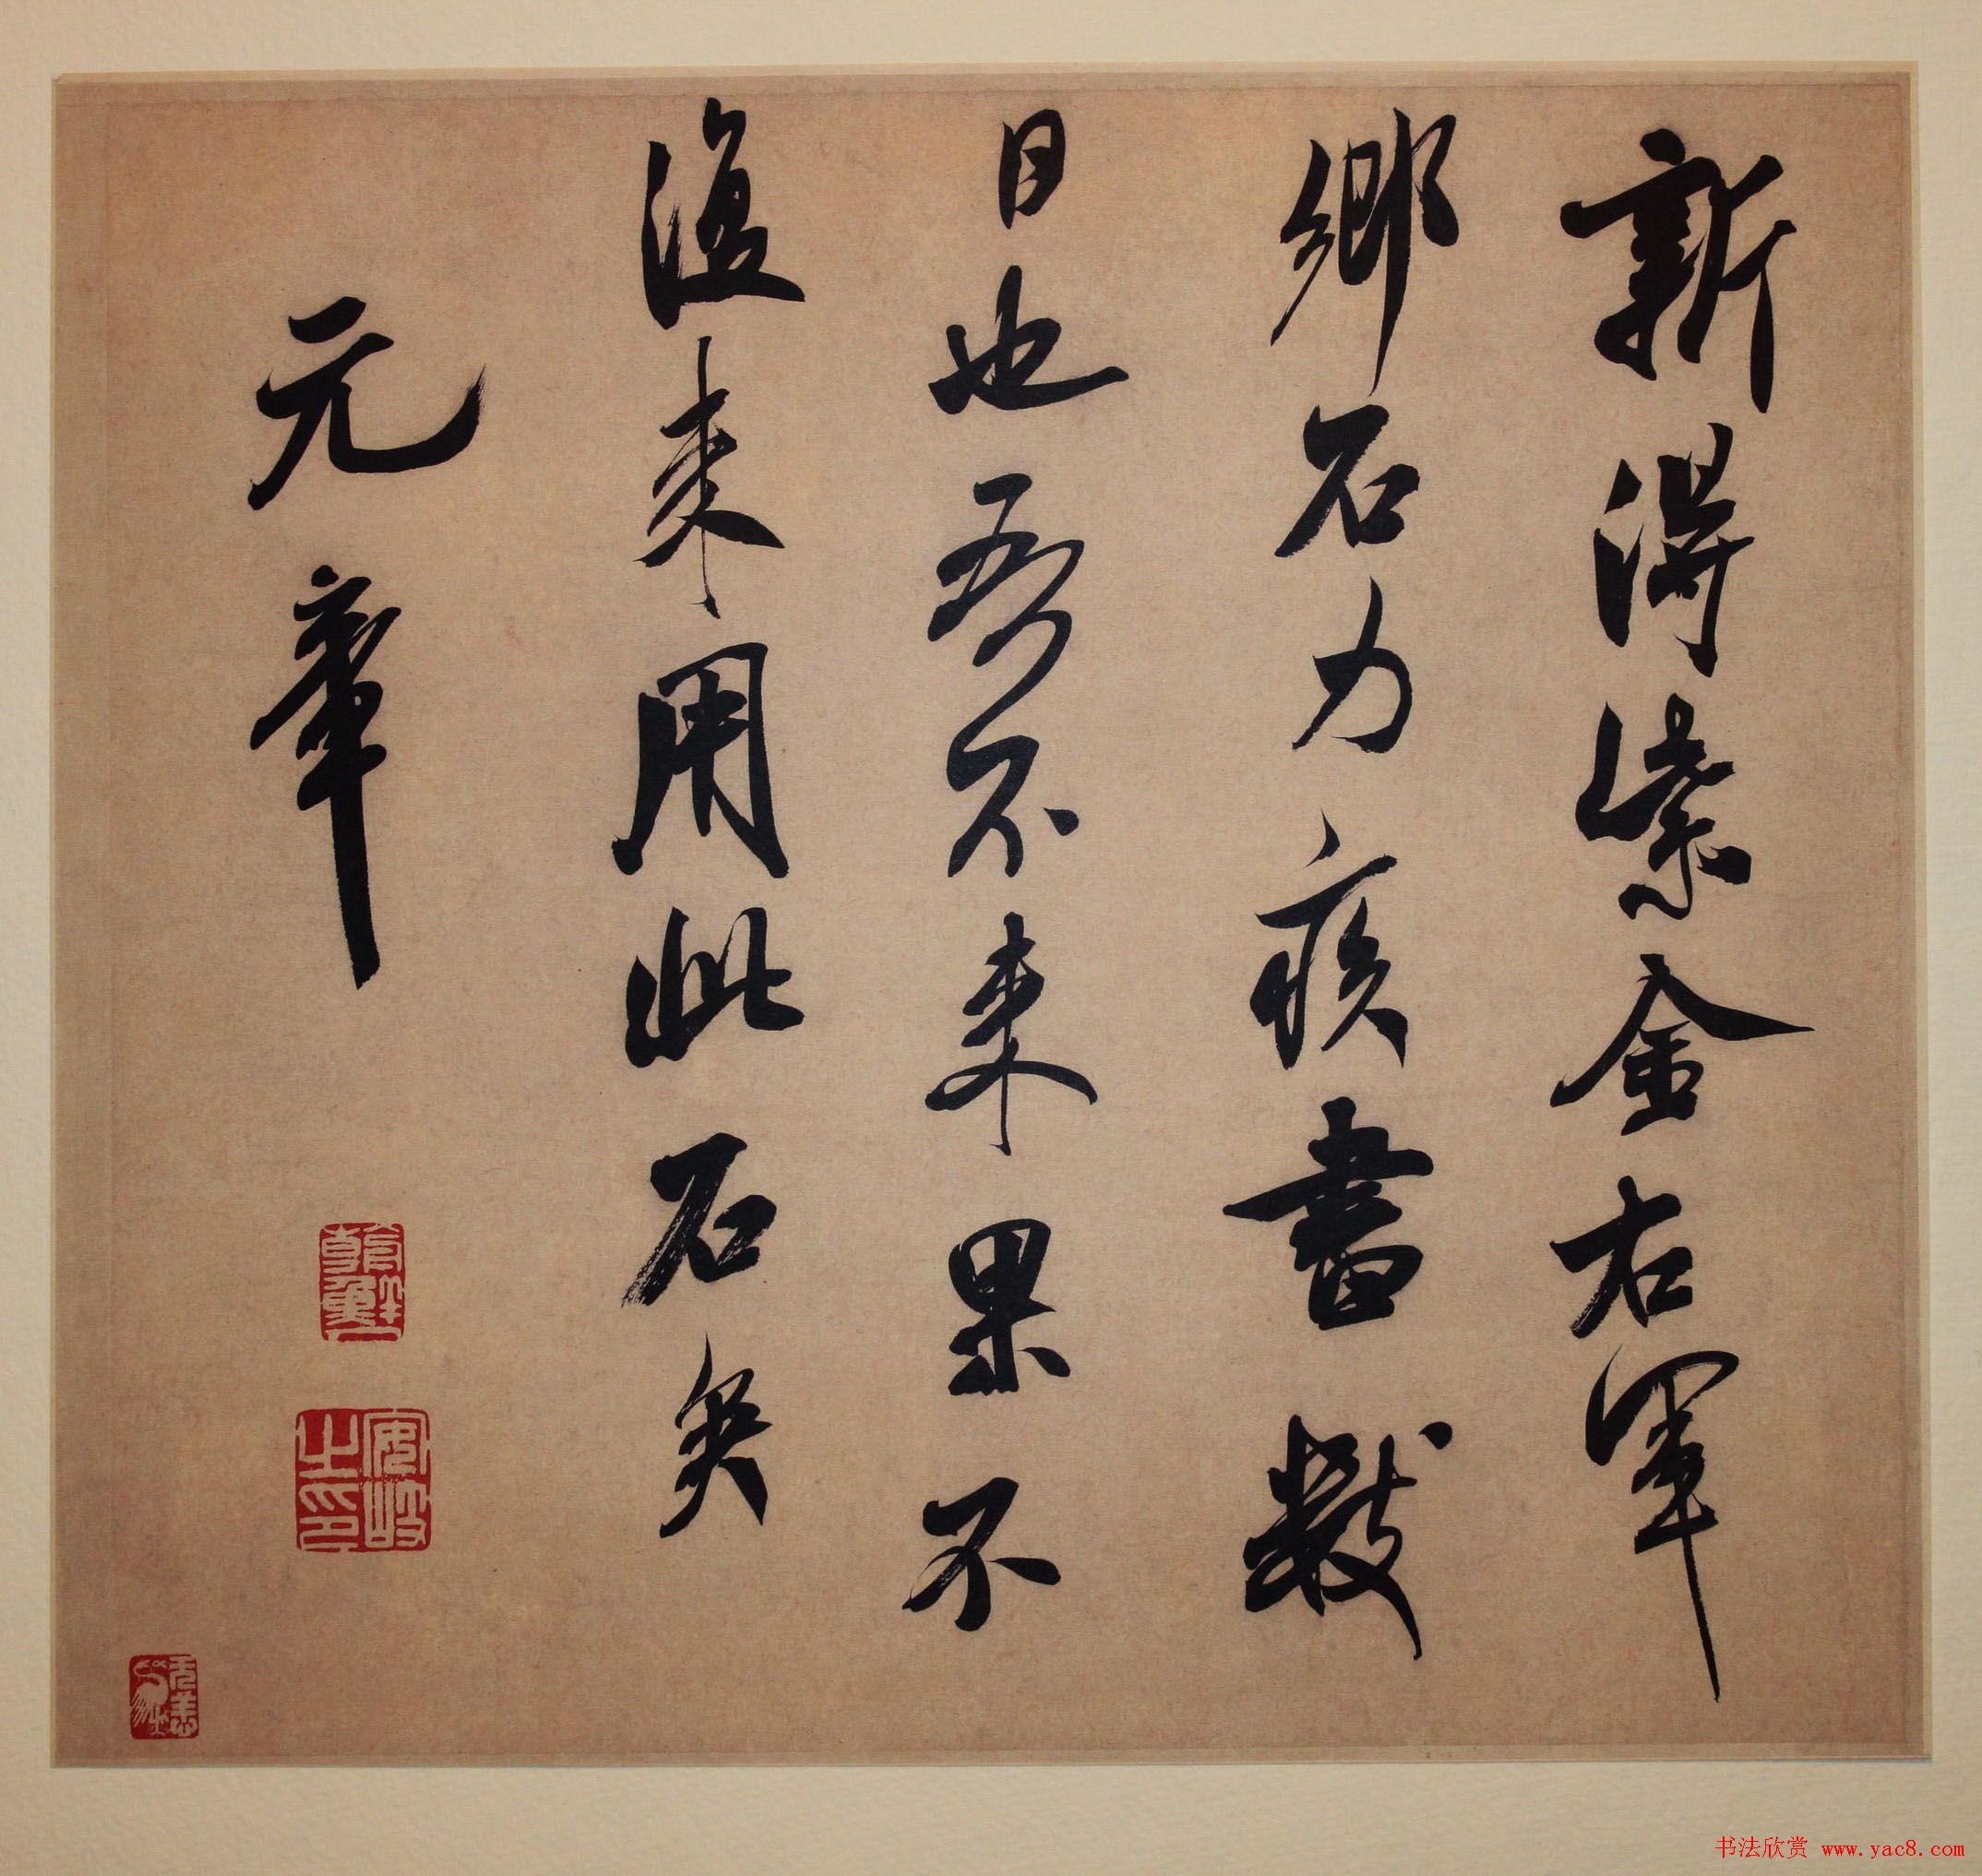 新得紫金右軍
鄉石力疾書數
日也吾不来果不
復来用此石矣
元章
安岐
之印
书法欣赏 www.yac8.com